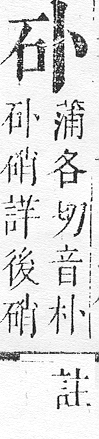 蒲各切音朴
硝詳後硝
註